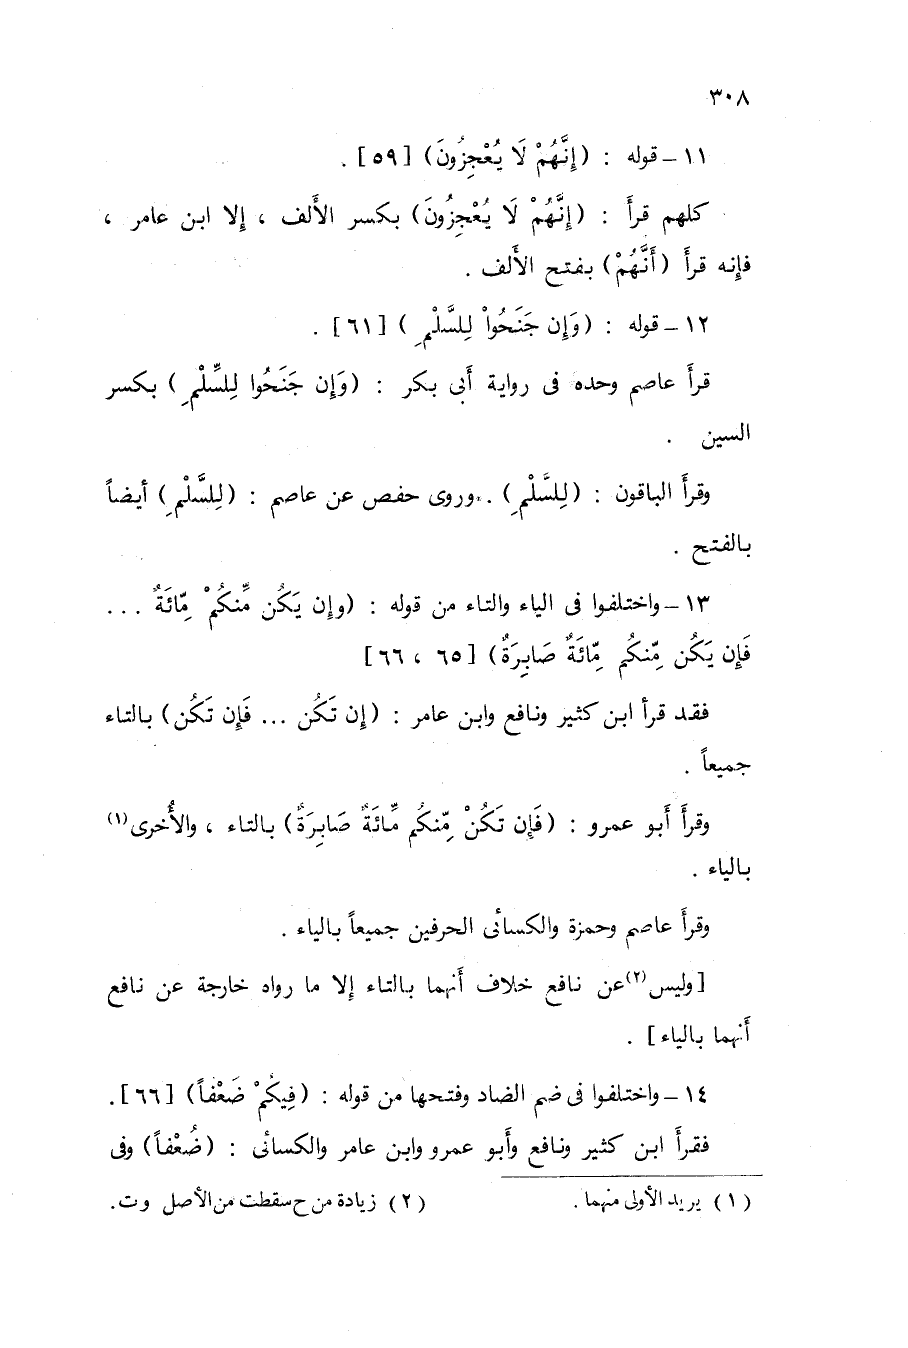 ٣٠٨
١١ – قوله : (إِنَّهُمْ لَا يُعْجِزُونَ) [٥٩] .
كلهم قرأ : (إِنَّهُمْ لَا يُعْجِزُونَ) بكسر الألف ، إلا ابن عامر ،
فإنه قرأ (أَنَّهُمْ) بفتح الألف .
١٢ – قوله : (وَإِن جَنَحُواْ لِلسَّلْمِ ) [٦١] .
قرأ عاصم وحده فى رواية أبى بكر : (وَإِن جَنَحُوا لِلسِّلْمِ ) بكسر
السين .
وقرأ الباقون : (لِلسَّلْمِ) . وروى حفص عن عاصم : (لِلسَّلْمِ) أيضاً
بالفتح .
١٣ – واختلفوا فى الياء والتاء من قوله : (وإِن يَكُن مِّنكُمْ مِّائَةٌ ...
فَإِن يَكُن مِّنكُم مِّائَةٌ صَابِرَةٌ) [٦٥ ، ٦٦]
فقد قرأ ابن كثير ونافع وابن عامر : (إِن تَكُن ... فَإِن تَكُن) بالتاء
جميعاً .
وقرأ أبو عمرو : (فَإِن تَكُنْ مِّنكُم مِّائَةٌ صَابِرَةٌ) بالتاء ، والأُخرى(١)
بالياء .
وقرأ عاصم وحمزة والكسائى الحرفين جميعاً بالياء .
[وليس(٢) عن نافع خلاف أنهما بالتاء إلا ما رواه خارجة عن نافع
أنهما بالياء] .
١٤ – واختلفوا فى ضم الضاد وفتحها من قوله : (فِيكُمْ ضَعْفاً) [٦٦] .
فقرأ ابن كثير ونافع وأبو عمرو وابن عامر والكسائى : (ضُعْفاً) وفى
(١) يريد الأولى منهما . (٢) زيادة من ح سقطت من الأصل وت .